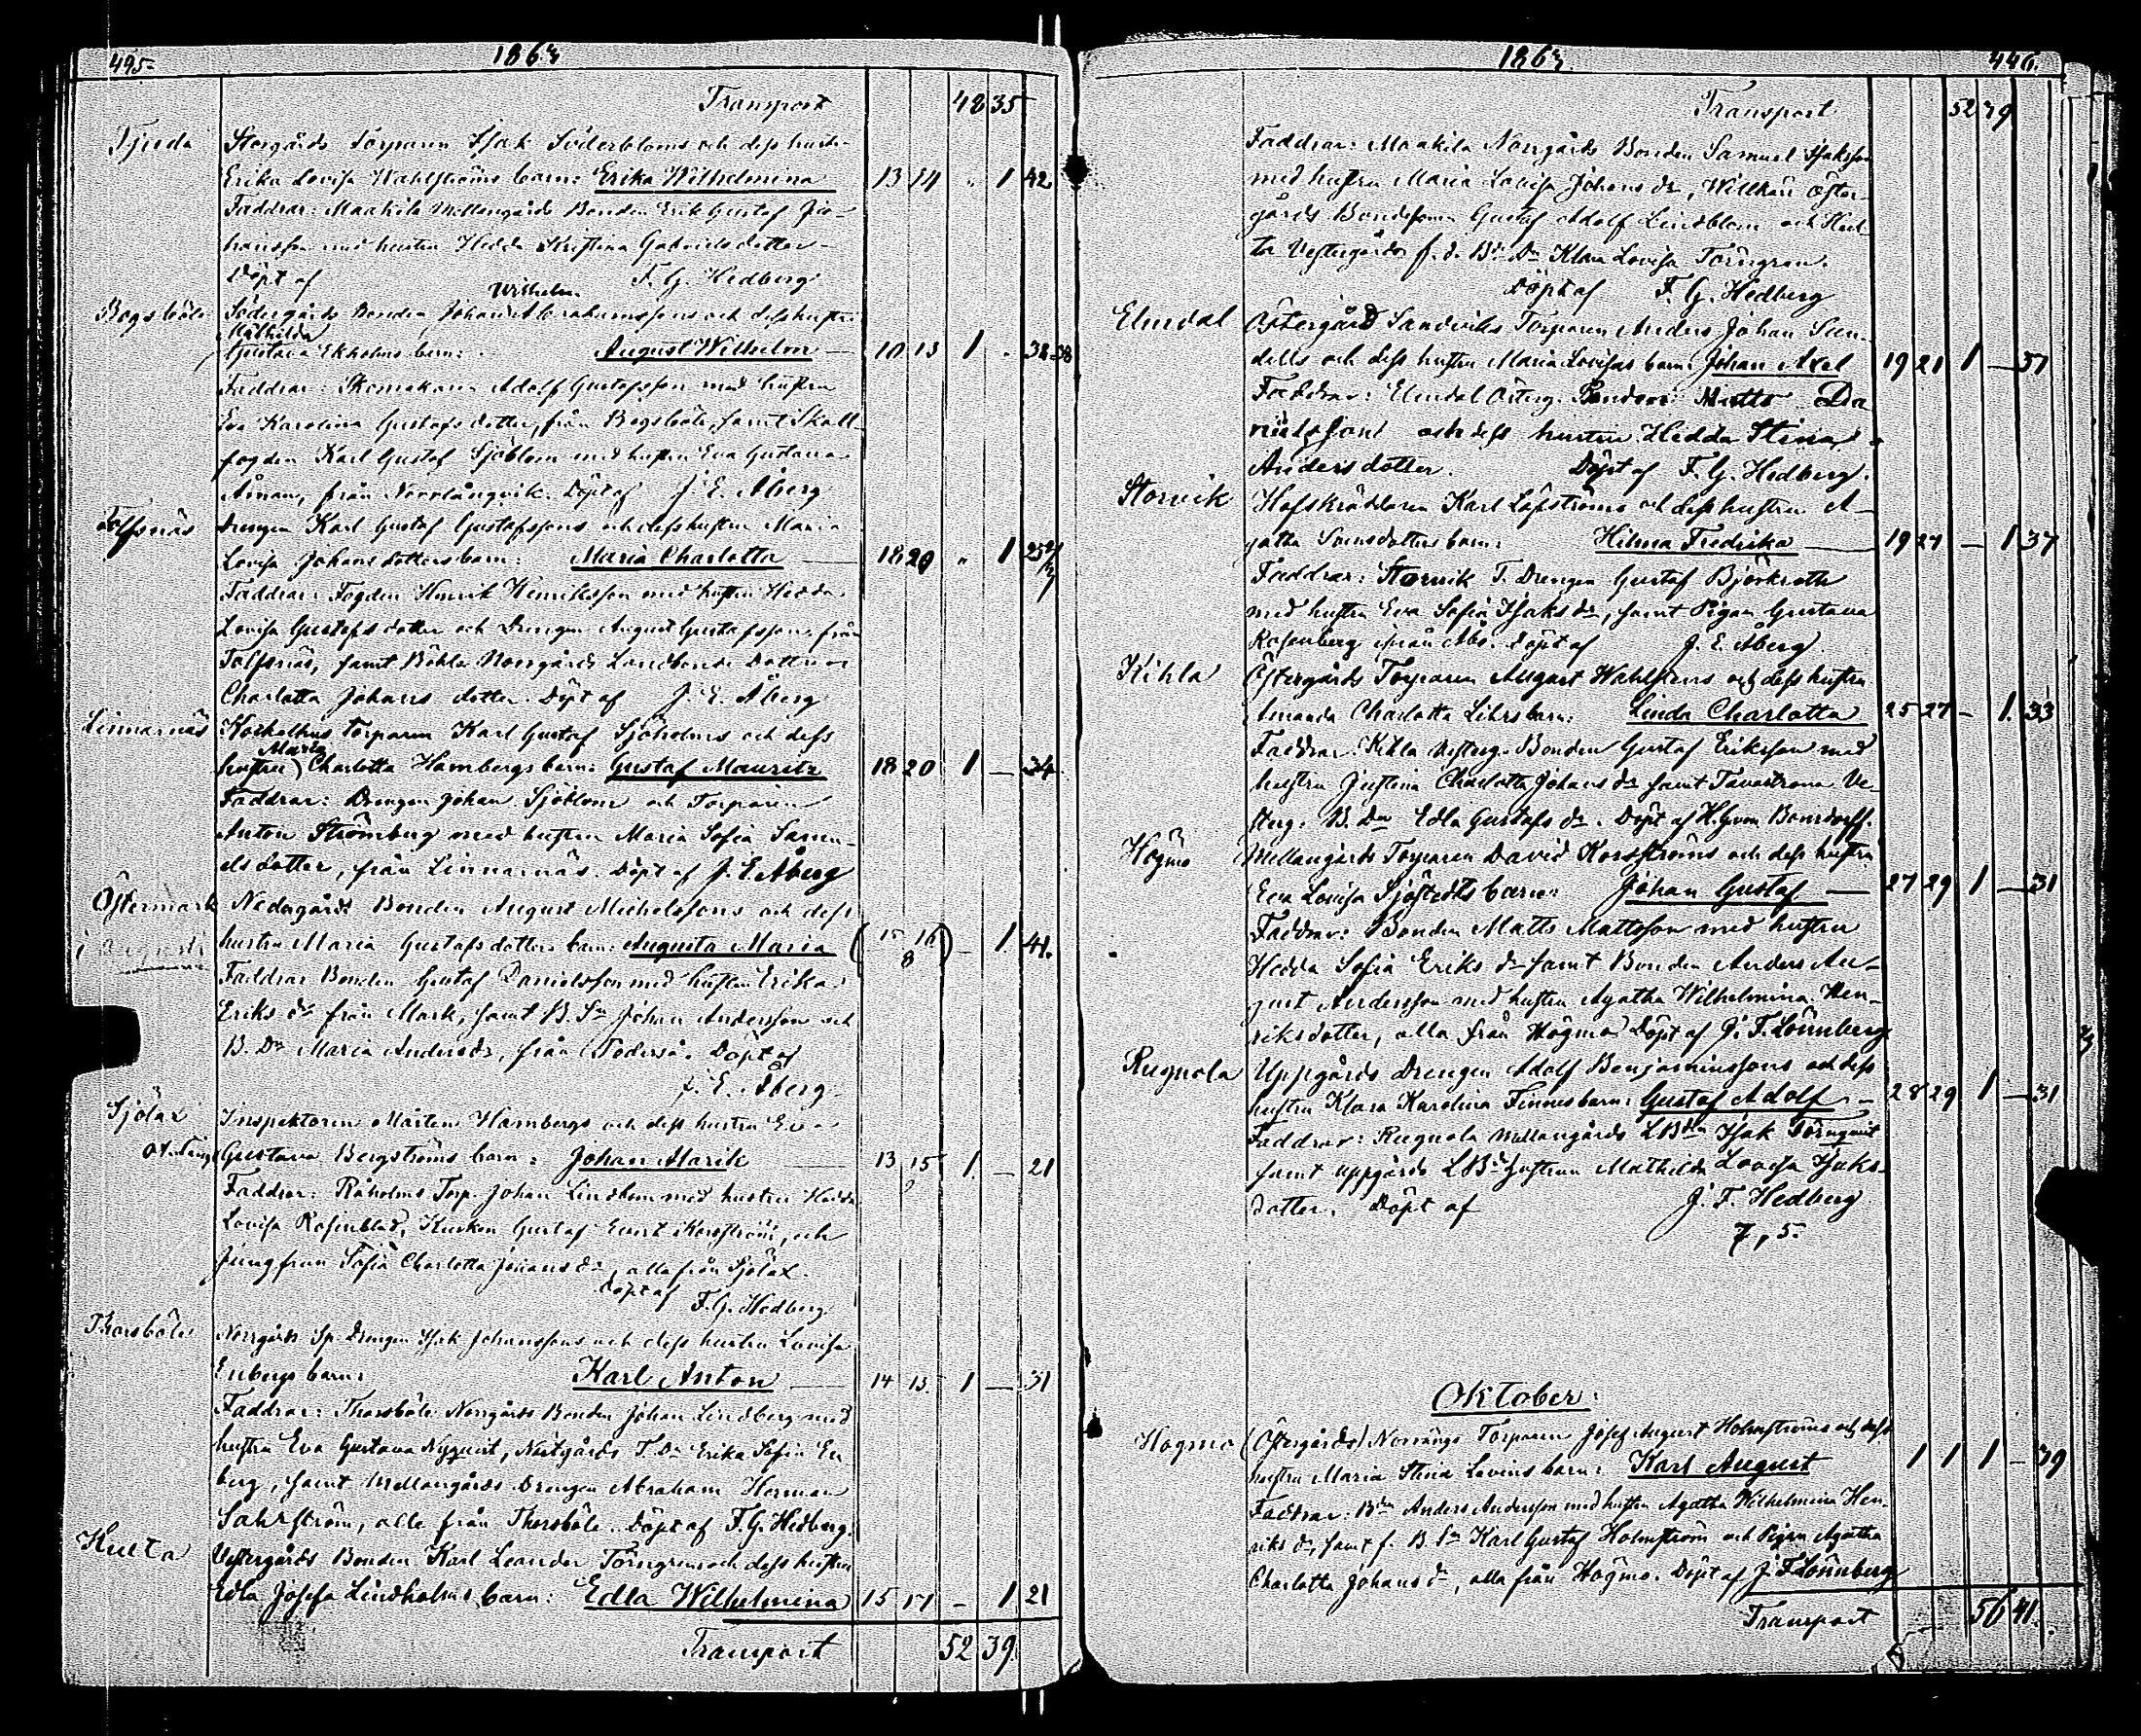 495. 1863
Transport 48 35
Tjuda Storgårds Torparen Isak Söderbloms och dess hustr.
Erika Lovisa Wahlströms barn: Erika Wilhelmina 13 14 " 1 42
Faddrar: Maakila Mellangårds Bonden Erik Gustaf Jo-
hansson med hustru Hedda Kristina Gabrielsdotter
Döpt af F. G. Hedberg
Wilhelm.
Bogsböle Södergårds Bonden Johan Abrahamssons och dess hustru
Mathilda
Gustava Ekholms barn: August Wilhelm 10 13 1 . 32-38
Faddrar: Skomakaren Adolf Gustafsson med hustru
Eva Karolina Gustafsdotter, från Bogsböle, samt Skall-
fogden Karl Gustaf Sjöblom med hustru Eva Gustava
Åman, från Norrlångvik. Döpt af J. E. Åberg
Drengen Karl Gustaf Gustafssons och dess hustru Maria
Lovisa Johansdotters barn: Maria Charlotta 18 20 " 1
Faddrar: Fogden Henrik Henriksson med hustru Hedda
Lovisa Gustafsdotter och Drengen August Gustafsson, från
Tolfsnäs, samt Böhle Norrgårds Landbonde Dottren
Charlotta Johans dotter. Döpt af J. E. Åberg
Linnarnäs Torparen Karl Gustaf Sjöholms och dess
Maria
hustru) Charlotta Hambergs barn: Gustaf Mauritz 18 20 1 — 34
Faddrar: Drengen Johan Sjöblom och Torparen
Anton Strömberg med hustru Maria Sofia Samu-
elsdotter, från Linnarnäs. Döpt af J. E. Åberg
Östermark Nedergårds Bonden August Michelssons och dess
i Augusti hustru Maria Gustafsdotters barn: Augusta Maria (15 16) — 1. 41.
8
Faddrar Bonden Gustaf Danielsson med hustru Erika
Eriks dr från Mark, samt B. Sn Johan Andersson och
B. Dr Maria Andersdr, från Döpt af
J. E. Åberg
Sjölax Inspektoren Mårten Hambergs och dess hustru Eva
Gustava Bergströms barn: Johan Alarik 13 15 1. — 21
Faddrar: Råholms Torp. Johan Lindbom med hustru Hedda
Lovisa Rosenblad, Kusken Gustaf Evert Korsström, och
Jungfrun Sofia Charlotta Johansdr, alla från Sjölax.
Döpt af F. G. Hedberg
Thorsböle Norrgårds Sp. Drengen Isak Johanssons och dess hustru Lovisa
Enbergs barn: Karl Anton 14 15. 1 — 31
Faddrar: Thorsböle Norrgårds Bonden Johan Lindberg med
hustru Eva Gustava Nyqvist, Nistgårds T. Dr Erika Sofia En
berg, samt Mellangårds Drengen Abraham Herman
Sahlström, alla från Thorsböle. Döpt af F. G. Hedberg.
Kulta Vestergårds Bonden Karl Leander Törngrens och dess hustru
Edla Josefa Lindholms barn: Edla Wilhelmina 15 17 — 1 21
Transport 52 39
1863. 446.
Transport 52 39
Faddrar: Maakila Norrgårds Bonden Samuel Isaksson
med hustru Maria Lovisa Johansdr, Willkari Öster-
gårds Bondesonen Gustaf Adolf Lindblom och Kul-
ta Vestergårds f. d. Bd. Dr Klara Lovisa Törngren.
Döpt af F. G. Hedberg
Elmdal Östergård Sandviks Torparen Anders Johan Sun-
dells och dess hustru Maria Lovisas barn: Johan Axel 19 21 1 — 37
Faddrar: Elmdal Österg. Bonden Matts Da
nielsson och dess hustru Hedda Stina
Andersdotter. Döpt af F. G. Hedberg.
Storvik Hofskräddaren Karl Löfströms och dess hustru A-
gatha barn: Hilma Fredrika 19 27 — 1 37
Faddrar: Storvik T. Drengen Gustaf Björkroth
med hustru Eva Sofia Isaksdr, samt Pigan Gustava
Rosenberg ifrån Åbo. Döpt af J. E. Åberg
Kihla Östergårds Torparen August Wahlstens och dess hustru
Amanda Charlotta Lihrs barn: Linda Charlotta 25 27 — 1. 33
Faddrar: Kihla Vesterg. Bonden Gustaf Eriksson med
hustru Justina Charlotta Johansdr samt Tavastrom Ve-
sterg. B. Dr Edla Gustafsdr. Döpt af H. G. von Bonsdorff.
Högmo Mellangårds Torparen David Korsströms och dess hustru
Eva Lovisa Sjöstedts barn: Johan Gustaf — 27 29 1 — 31
Faddrar: Bonden Matts Mattsson med hustru
Hedda Sofia Eriksdr samt Bonden Anders Au-
gust Andersson med hustru Agatha Wilhelmina Hen-
riksdotter, alla från Högmo Döpt af J. F. Lönnberg
Rugnola Uppgårds Drengen Adolf Benjaminssons och dess
hustru Klara Karolina Finnes barn: Gustaf Adolf — 28 29 1 — 31
Faddrar: Rugnola Mellangårds LBdn Isak Törnqvist
samt uppgårds LBd hustrun Mathilda Lovisa Isaks-
dotter. Döpt af J. F. Hedberg
7, 5.
Oktober.
Högmo (Östergårds) Norrängs Torparen Josef August Holmströms och dess
hustru Maria Stina Lovins barn: Karl August 1 1 1 — 39
Faddrar: Bdn Anders Andersson med hustru Agatha Wilhelmina Hen-
riksdr, samt f. B. Sn Karl Gustaf Holmström och Pigan Agatha
Charlotta Johansdr, alla från Högmo. Döpt af J. F. Lönnberg
Transport 56 41.